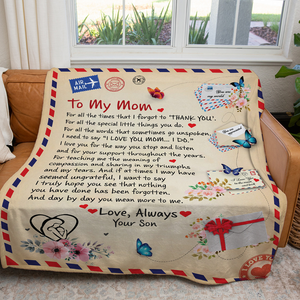 AIR
MAIL
To My Mom
For all the times that I forgot to "THANK YOU".
For all the special little things you do.
For all the words that sometimes go unspoken,
I need to say "I LOVE YOU MOM... I DO."
I love you for the way you stop and listen
and for your support throughout the years.
For teaching me the meaning of
compassion and sharing in my triumphs
and my tears. And if at times I may have
seemed ungrateful, I want to say
I truly hope you see that nothing
you have done has been forgotten.
And day by day you mean more to me.
Love, Always
Your Son
I LOVE